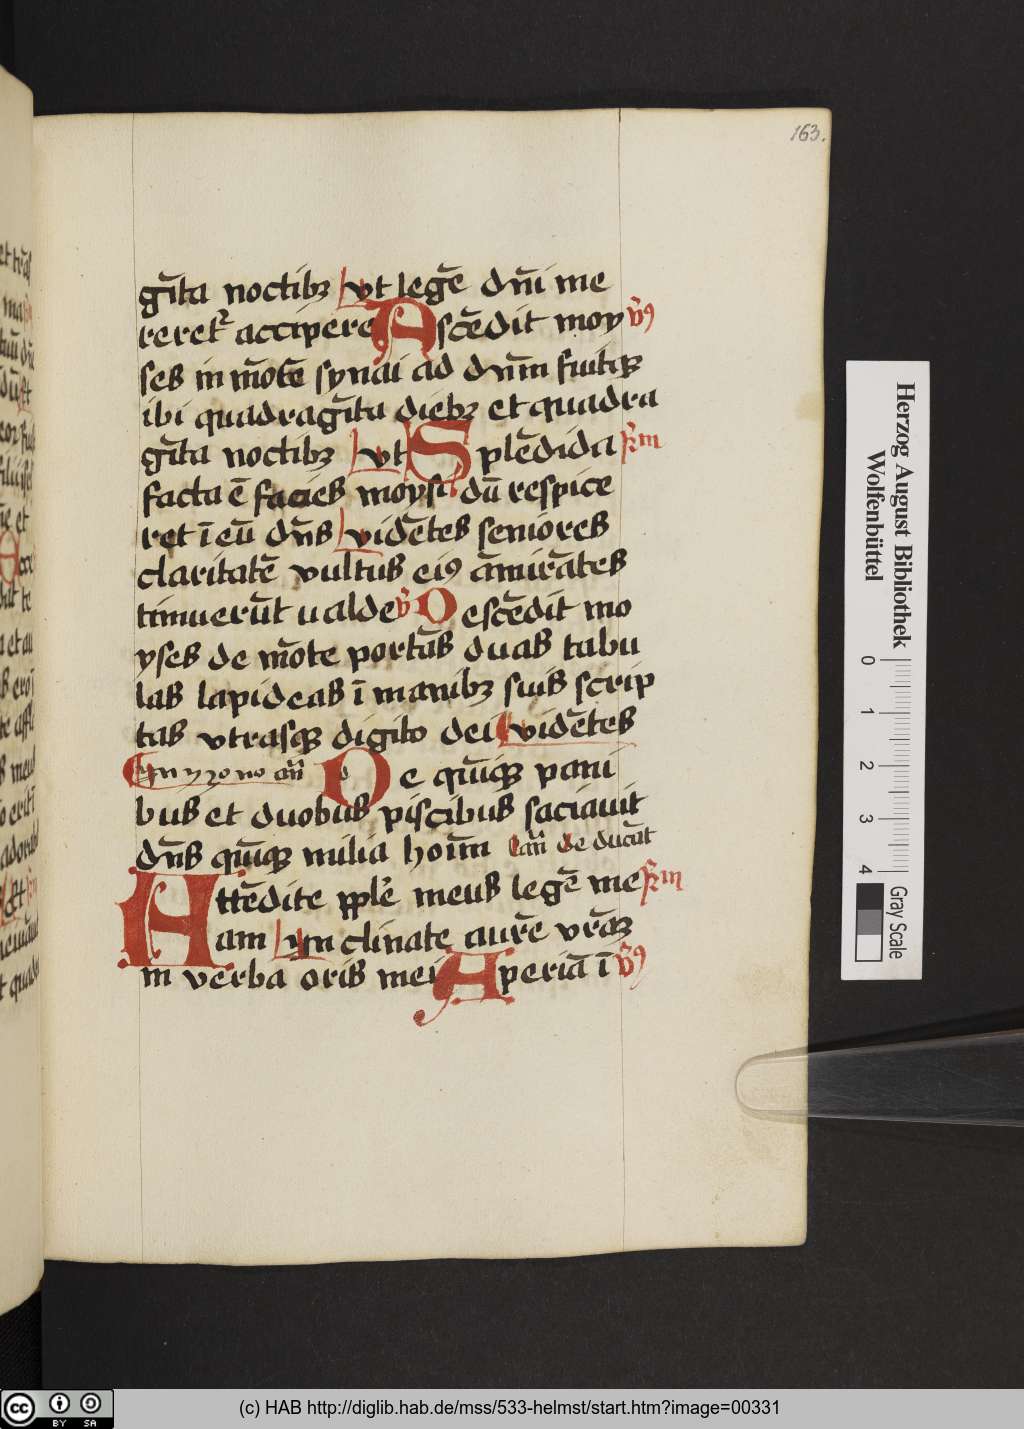 163.
gr̄ita noctibꝫ Vt legē dn̄i me
reretᷣ accipere Ascēdit moy ℣ꝰ
ses in mōte synai ad dn̄m fuitqꝫ
ibi quadragīta diebꝫ et quadra
gīta noctibꝫ Vt Splēdida k̄m
facta ē facies moysi dū respice
ret ī eū dn̄s Vidētes seniores
claritatē vultus eiꝰ āmirātes
timuerūt ualde ℣ Descēdit mo
yses de mōte portās duas tabu
las lapideas ī manibꝫ suis scrip
tas vtrasqꝫ digito dei Vidētes
yn yzo no an̄ De quīqꝫ pani
bus et duobus piscibus saciauit
dn̄s quīqꝫ milia hoīm an̄ de ducāt
Attēdite pplē meus legē me k̄m
am Yn clinate aurē vrāqꝫ
in verba oris mei Aperiā ī ℣ꝰ
Herzog August Bibliothek
Wolfenbüttel
0 1 2 3 4
Gray Scale
cc BY SA
(c) HAB http://diglib.hab.de/mss/533-helmst/start.htm?image=00331